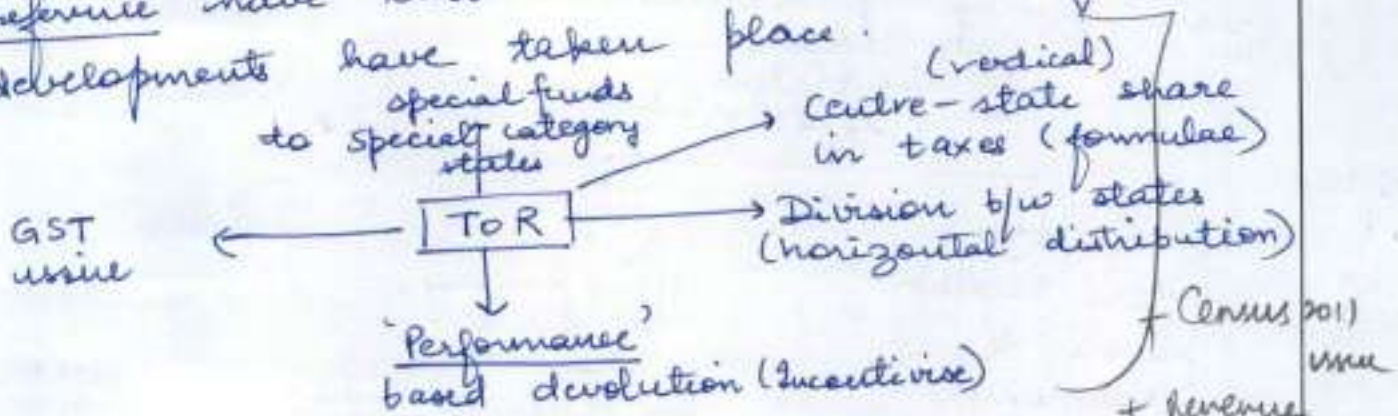 reference have
developments have taken place.
special funds
to special category
states
(vertical)
Centre-state share
in taxes (formulae)
ToR
Division b/w states
(horizontal distribution)
GST
issue
'Performance'
based devolution (Incentivise)
+ Census 2011
issue
+ Revenue